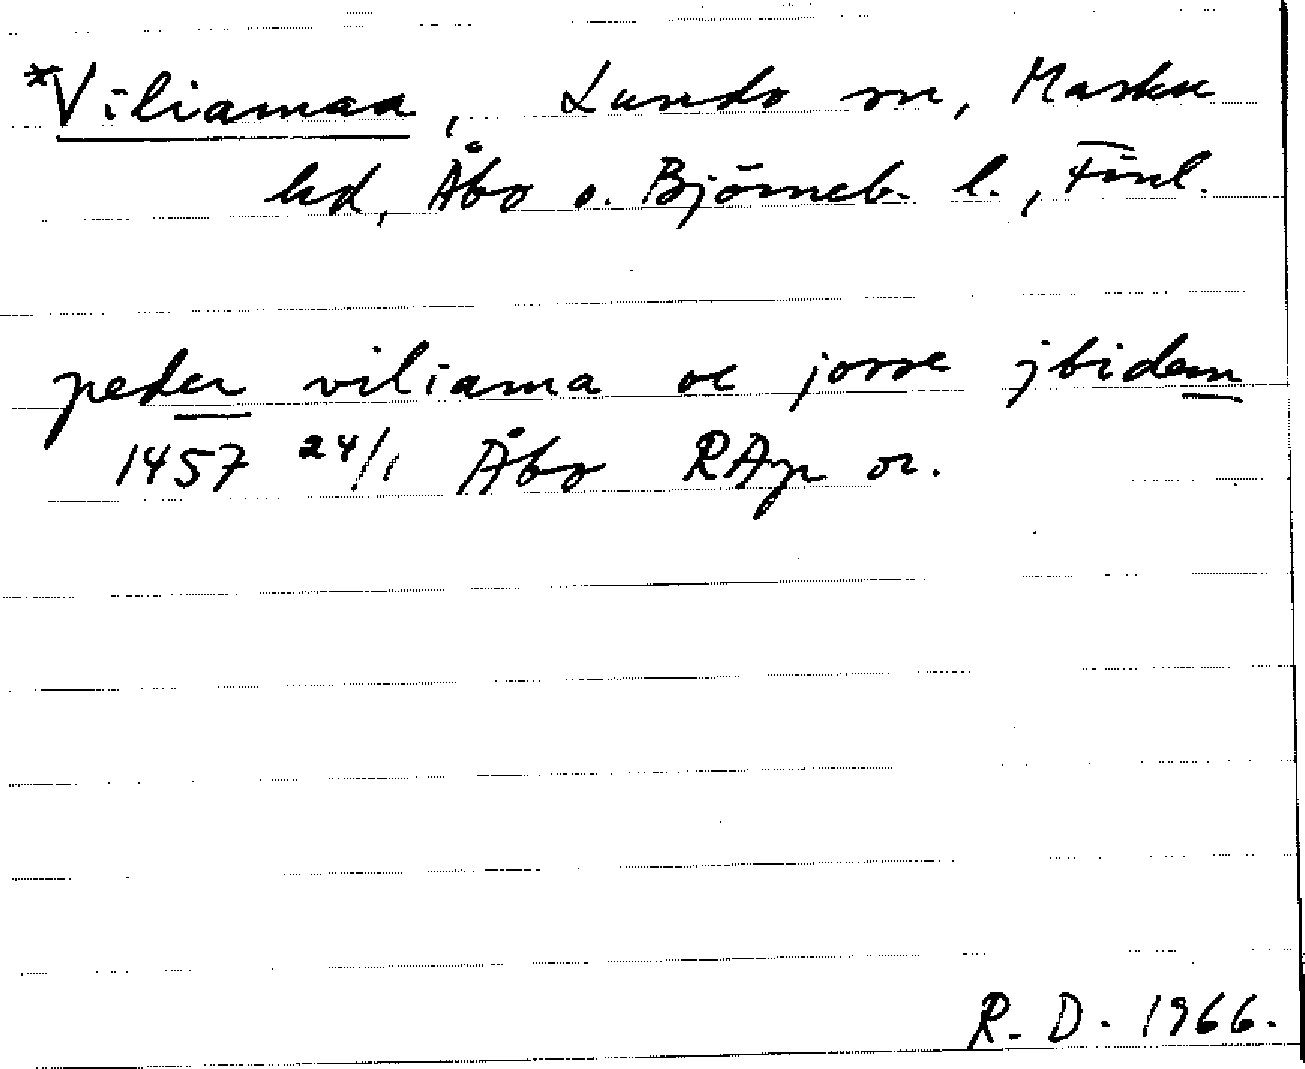 *Viliamaa, Lundo sn, Masku
hd, Åbo o. Björneb. l., Finl.
peder viliama oc jorre jbidem
1457 24/1 Åbo RAp or.
R. D. 1966.